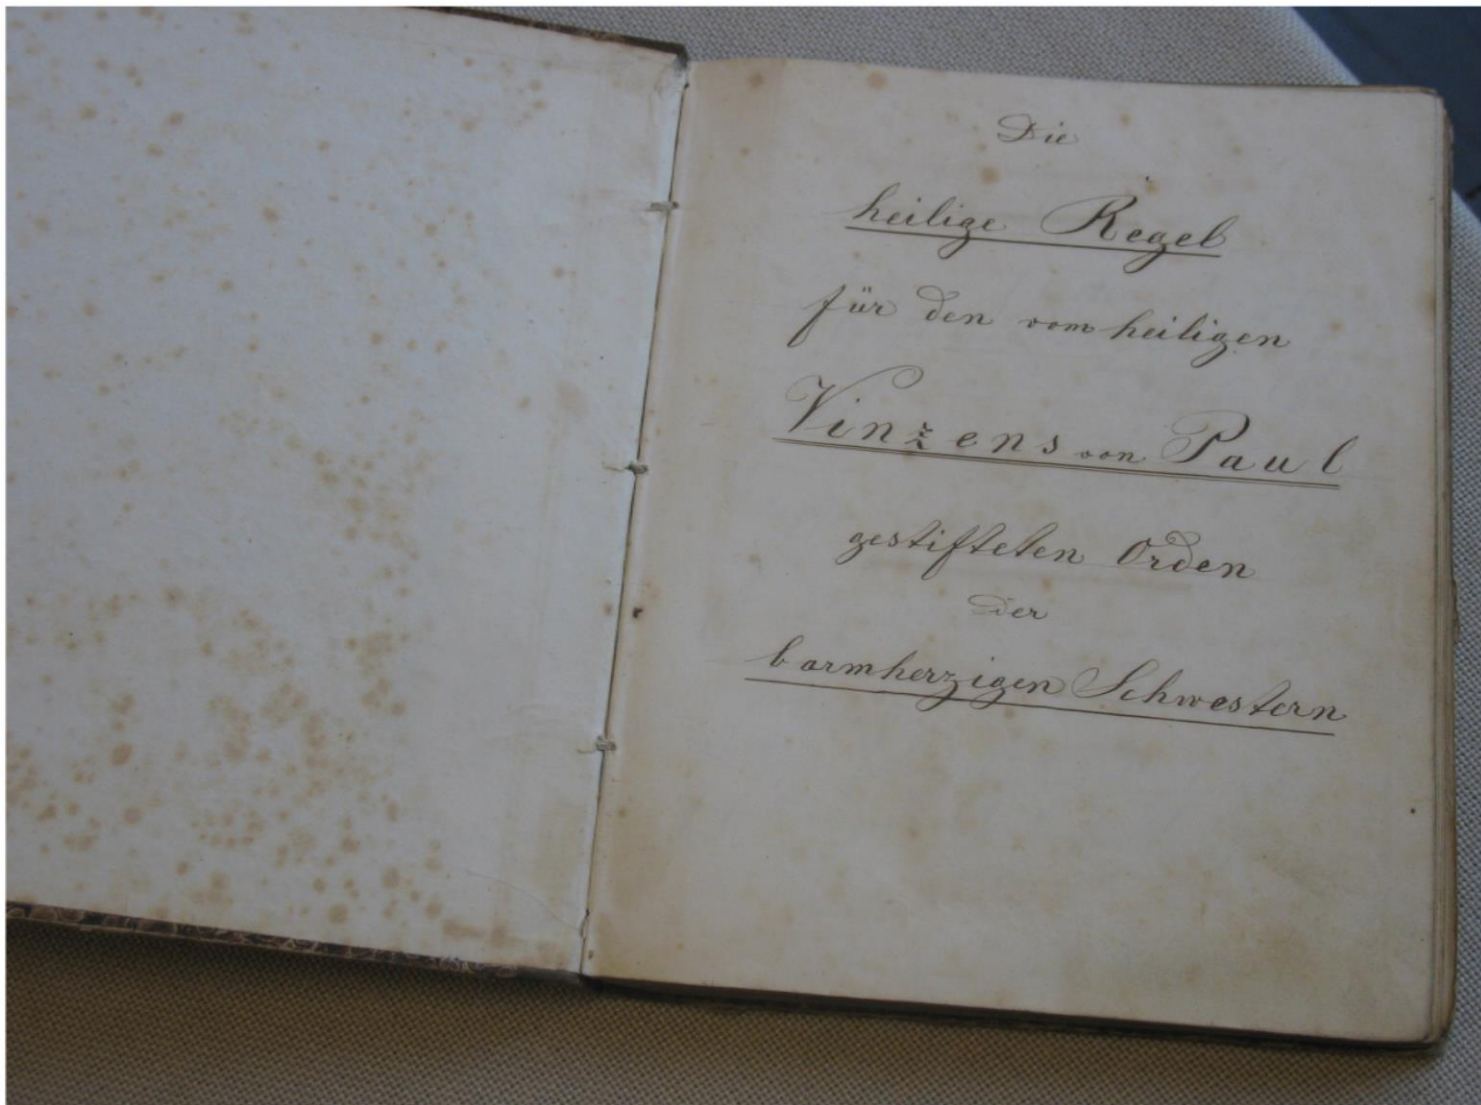 Die
heilige Regel
für den vom heiligen
Vinzens von Paul
gestifteten Orden
der
barmherzigen Schwestern